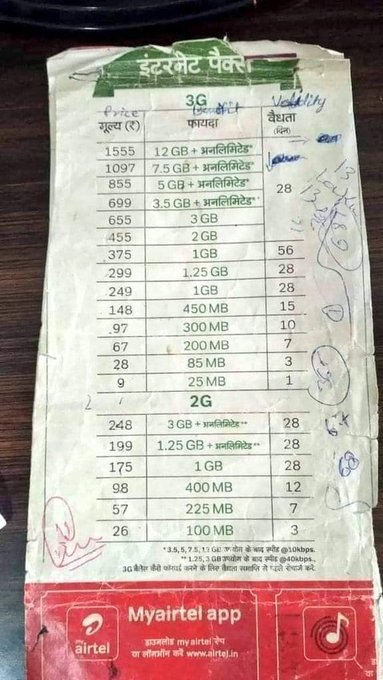 इंटरनेट पैक्स
3G
Price Benefit Validity
मूल्य (₹) फायदा वैधता (दिन)
1555 12 GB + अनलिमिटेड*
1097 7.5 GB + अनलिमिटेड*
855 5 GB + अनलिमिटेड* 28
699 3.5 GB + अनलिमिटेड*
655 3 GB
455 2 GB
375 1GB 56
299 1.25 GB 28
249 1GB 28
148 450 MB 15
97 300 MB 10
67 200 MB 7
28 85 MB 3
9 25 MB 1
2G
248 3 GB + अनलिमिटेड** 28
199 1.25 GB + अनलिमिटेड** 28
175 1 GB 28
98 400 MB 12
57 225 MB 7
26 100 MB 3
*3.5, 5, 7.5, 12 GB उपयोग के बाद स्पीड @10kbps.
**1.25, 3 GB उपयोग के बाद स्पीड @40kbps.
3G बैलेंस कैरी फॉरवर्ड करने के लिए वैधता समाप्ति से पहले रीचार्ज करें.
my airtel
Myairtel app
डाउनलोड my airtel ऐप
या लॉगऑन करें www.airtel.in